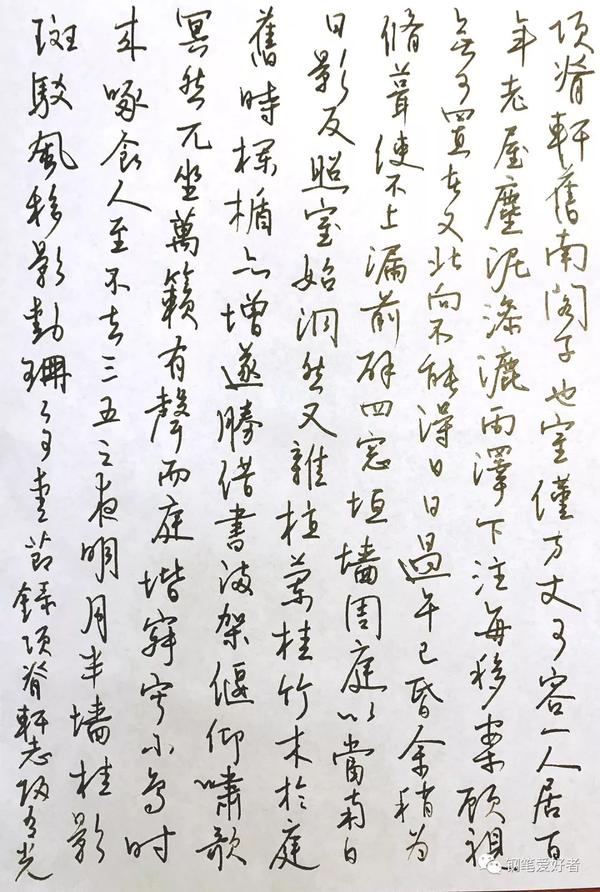 項脊軒舊南閣子也室僅方丈可容一人居百
年老屋塵泥滲漉雨澤下注每移案顧視
無可置者又北向不能得日日過午已昏余稍為
脩葺使不上漏前辟四窓垣墻周庭以當南日
日影反照室始洞然又雜植蘭桂竹木於庭
舊時欄楯亦增遂勝借書滿架偃仰嘯歌
冥然兀坐萬籟有聲而庭堦寂寂小鳥時
來啄食人至不去三五之夜明月半墻桂影
斑駁風移影動珊々可愛節錄項脊軒志歸有光
钢笔爱好者